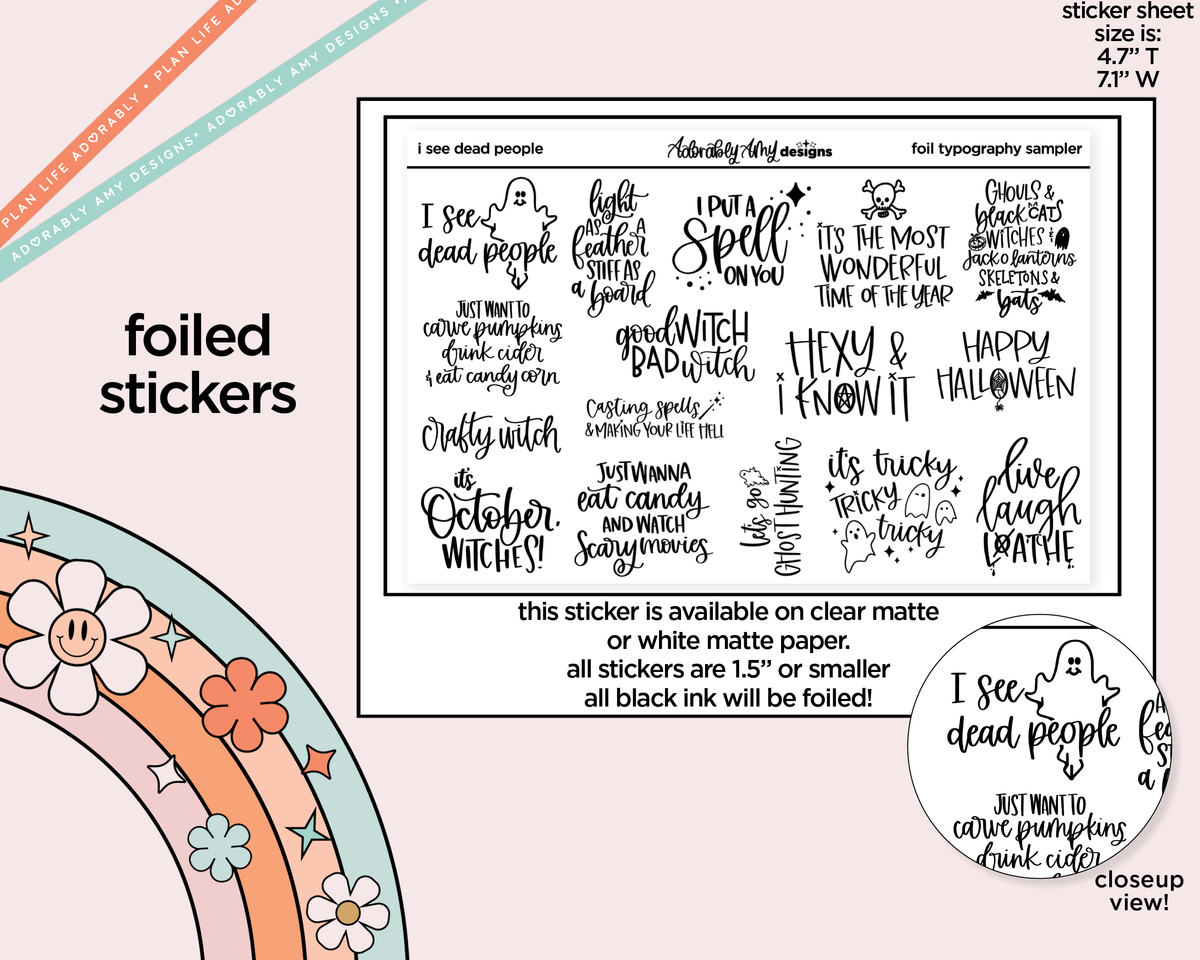 PLAN LIFE ADORABLY • PLAN LIFE AD
ADORABLY AMY DESIGNS• ADORABLY AMY DESIGNS •
sticker sheet
size is:
4.7” T
7.1” W
foiled
stickers
i see dead people
Adorably Amy designs
foil typography sampler
I see
dead people
light
AS A
feather
STIFF AS
a board
I PUT A
Spell
ON YOU
iT'S THE MOST
WONDERFUL
TiME OF THE YEAR
GHOULS &
black CATS
WiTCHES &
Jack o lanterns
SKELETONS &
bats
JUST WANT TO
carve pumpkins
drink cider
& eat candy corn
good WITCH
BAD witch
HEXY &
i KNOW iT
HAPPY
HALLOWEEN
Crafty witch
Casting spells
& MAKING YOUR LIFE HELL
it's
October,
WITCHES!
JUST WANNA
eat candy
AND WATCH
Scary movies
let's go
GHOST HUNTING
it's tricky
TRICKY
tricky
live
laugh
LOATHE
this sticker is available on clear matte
or white matte paper.
all stickers are 1.5” or smaller
all black ink will be foiled!
I see
dead people
A
fea
ST
a
JUST WANT TO
carve pumpkins
drink cider
closeup
view!